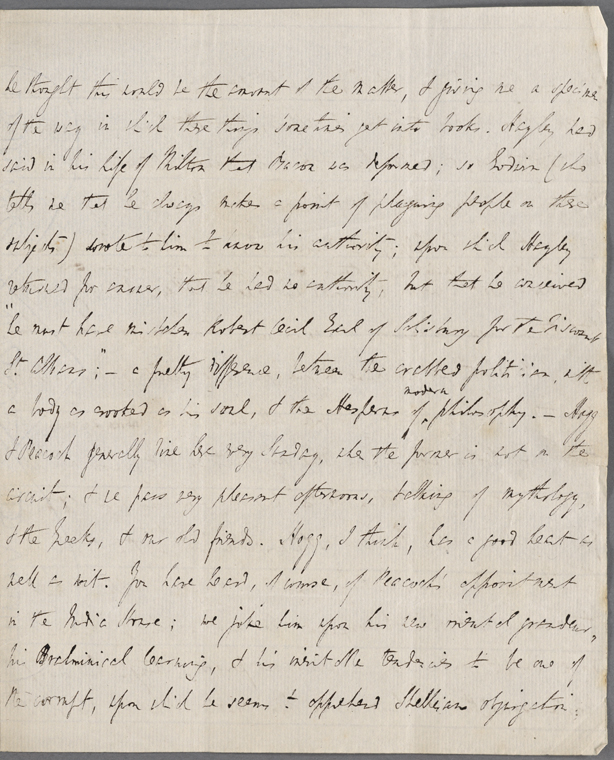 he thought this would be the amount of the matter, & giving me a specimen
of the way in which these things sometimes get into books. Hayley had
said in his life of Milton that Bacon was deformed; so Godwin (who
tells me that he always makes a point of plaguing people on these
subjects) wrote to him to know his authority; upon which Hayley
returned for answer, that he had no authority, but that he conceived
"he must have mistaken Robert Cecil Earl of Salisbury for the Viscount
St. Albans"; – a pretty difference, between the crabbed politician, with
a body as crooked as his soul, & the Hesperus of modern philosophy. – Hogg
& Peacock generally dine here every Sunday, when the former is not on the
circuit; & we pass very pleasant afternoons, talking of mythology,
& the Greeks, & our old friends. Hogg, I think, has a good heart as
well as wit. You have heard, of course, of Peacock's appointment
in the India House; we joke him upon his new oriental grandeur,
his Brahminical learning, & his inevitable tendencies to be one of
the corrupt, upon which he seems to apprehend Shelleian objurgation.